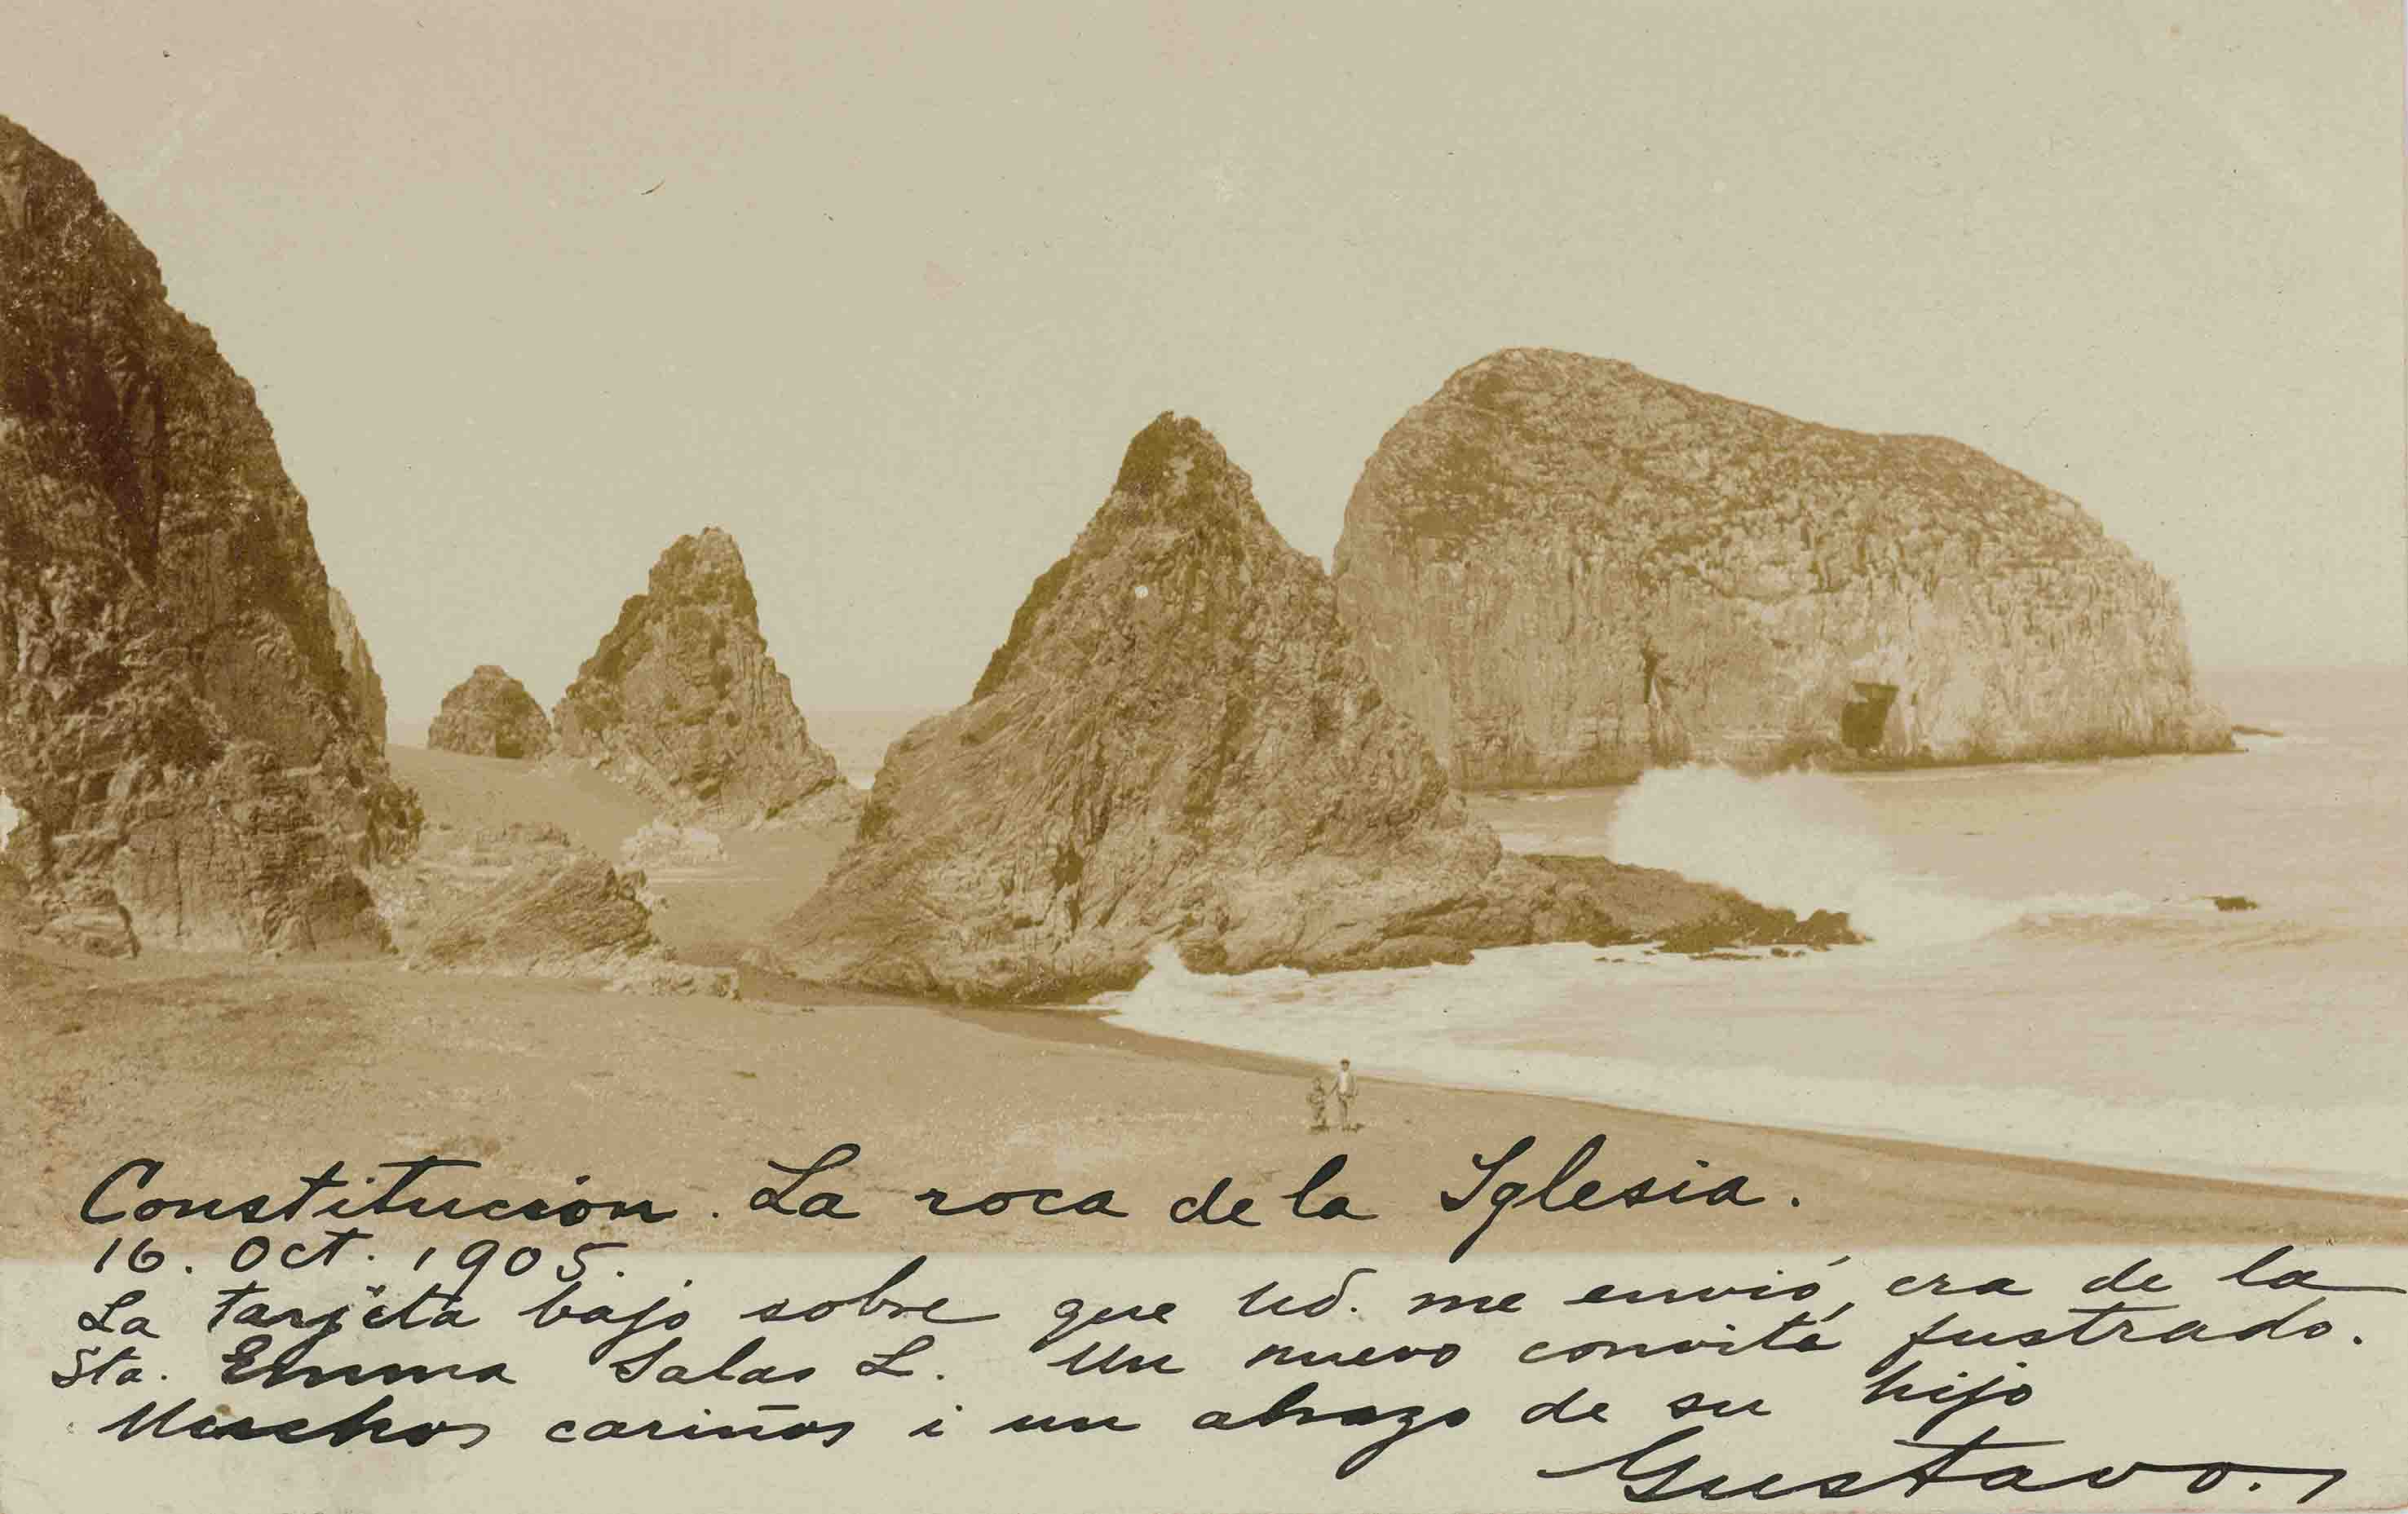 Constitución. La roca de la Iglesia.
16. Oct. 1905.
La tarjeta bajo sobre que Ud. me envió, era de la
Sta. Emma Salas L. Un nuevo convite fustrado.
Muchos cariños i un abrazo de su hijo
Gustavo.